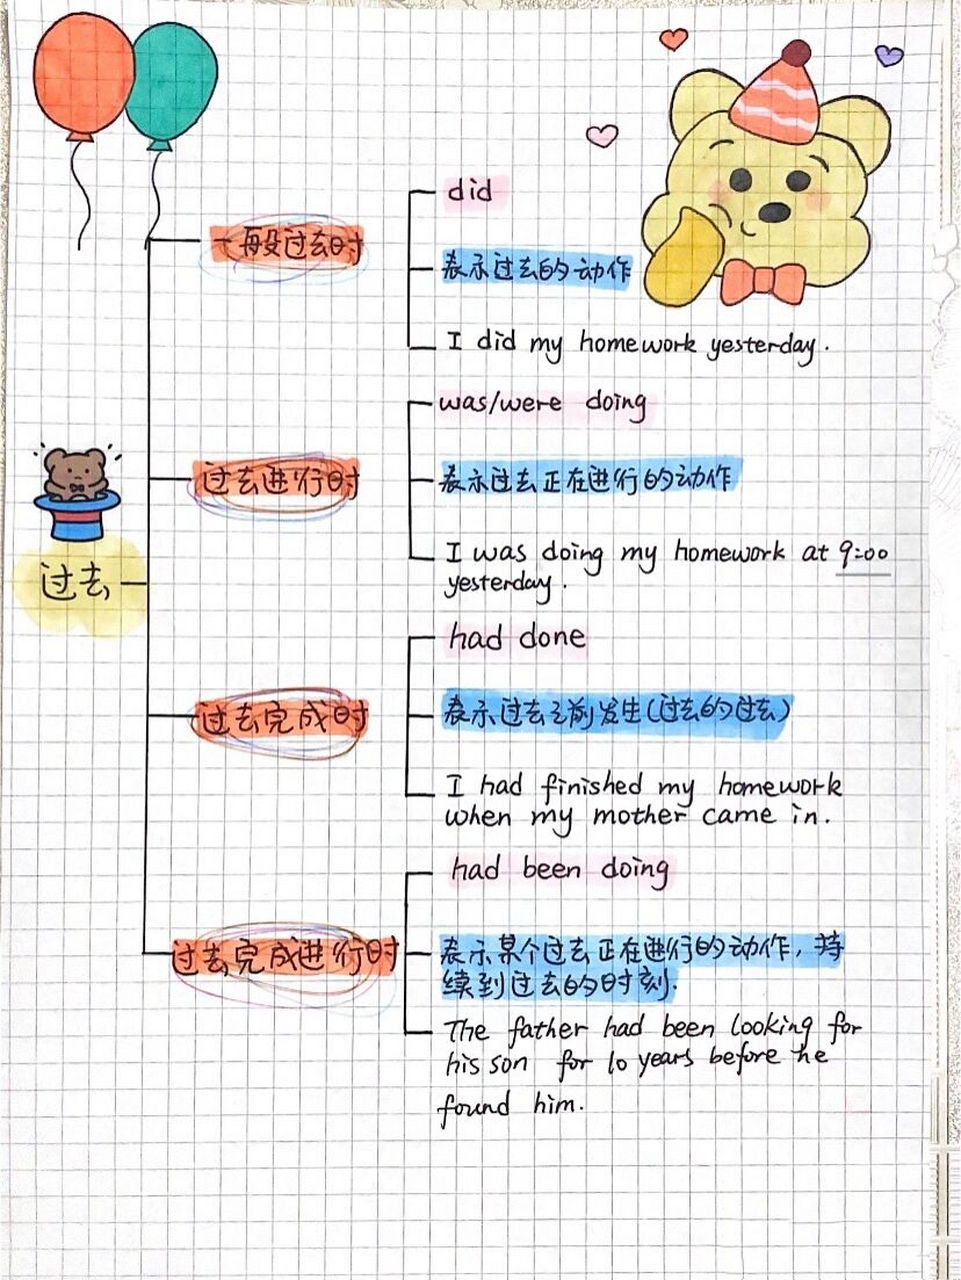 did
一般过去时
表示过去的动作
I did my homework yesterday.
was/were doing
过去进行时
表示过去正在进行的动作
I was doing my homework at 9:00
yesterday.
过去
had done
过去完成时
表示过去之前发生(过去的过去)
I had finished my homework
when my mother came in.
had been doing
过去完成进行时
表示某个过去正在进行的动作，持
续到过去的时刻.
The father had been looking for
his son for 10 years before he
found him.